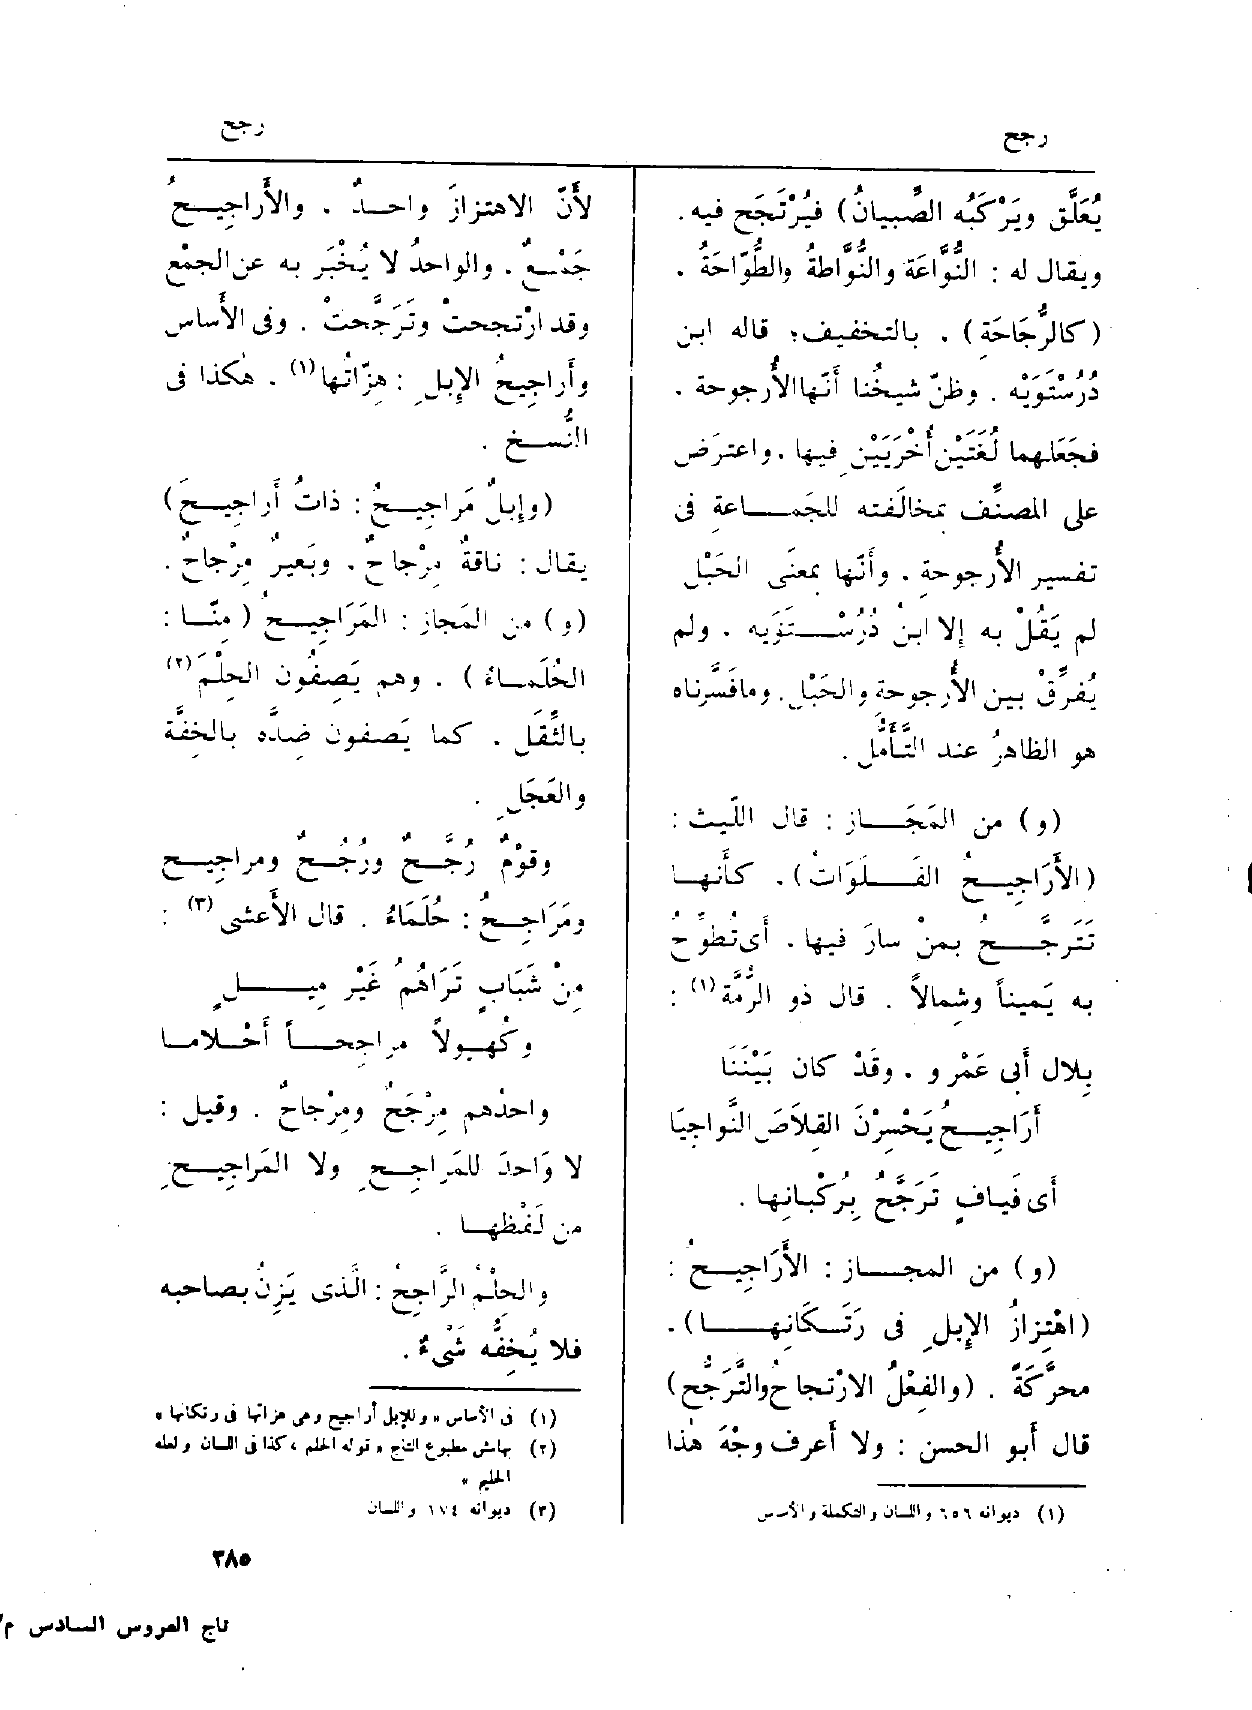 رجح
يُعَلَّق ويَرْكَبُه الصِّبيانُ) فيُرْتَجَح فيه.
ويقال له : النَّوَّاعَة والنُّوَّاطةُ والطَّوّاحَةُ .
(كالرُّجَاحَةِ) . بالتخفيف؛ قاله ابن
دُرُسْتَوَيْه . وظنّ شيخُنا أنّها الأُرجوحة .
فجَعَلهما لُغَتَيْنِ أُخْرَيَيْنِ فيها . واعترَض
على المصنِّف بمخالَفته للجَمــاعةِ فى
تفسير الأُرجوحةِ . وأنّها بمعنَى الحَبْلِ
لم يَقُلْ به إلا ابنُ دُرُسْــتَوَيه . ولم
يُفرِّقْ بين الأُرجوحةِ والحَبْلِ . ومافَسَّرناه
هو الظاهرُ عند التَّأَمُّل .
(و) من المَجَــاز : قال اللّيث :
(الأَرَاجِيــحُ الفَــلَوَاتُ) . كأَنهــا
تَتَرجَّــحُ بمنْ سارَ فيها . أى تُطَوِّحُ
به يَميناً وشِمالاً . قال ذو الرُّمَّة (١) :
بِلال أَبى عَمْرو . وقَدْ كان بَيْنَنَا
أَرَاجِيــحُ يَحْسِرْنَ القِلاَصَ النَّواجِيَا
أَى فَيافٍ تَرَجَّحُ بِرُكْبانِها .
(و) من المجــاز : الأَرَاجِيــحُ :
(اهْتِزازُ الإِبلِ فى رَتَــكَانِهــا) .
محرَّكَةً . (والفِعْلُ الارْتجاحُ والتَّرَجُّح)
قال أَبو الحسن : ولا أَعرف وجْهَ هٰذا
(١) ديوانه ٦٥٦ واللسان والتكملة والأساس
رجح
لأَنّ الاهتزازَ واحــدٌ . والأَراجِيــحُ
جَمْــعٌ . والواحدُ لا يُخْبَر به عن الجمْعِ
وقد ارْتجحتْ وتَرَجَّحتْ . وفى الأَساس
وأَراجِيحُ الإِبلِ : هِزّاتُها (١) . هٰكذا فى
النُّســخ .
(وإِبلٌ مَراجِيــحُ : ذاتُ أَراجِيــحَ)
يقال : ناقةٌ مِرْجاحٌ . وبَعيرٌ مِرْجاحٌ .
(و) من المَجاز : المَرَاجِيــحُ (مِنّــا :
الحُلَمــاءُ) . وهم يَصِفُون الحِلْمَ (٢)
بالثِّقَل . كما يَصفون ضِدَّه بالخِفَّة
والعَجَلِ .
وقَوْمٌ رُجَّــحٌ ورُجُــحٌ ومراجِيــح
ومَرَاجِــحُ : حُلَمَاءُ . قال الأَعشى (٣) :
مِنْ شَبَابٍ تَرَاهُمُ غَيْر مِيــلٍ
وكُهــولاً مراجِحــاً أَحْــلامــا
واحدُهم مِرْجَحٌ ومِرْجاحٌ . وقيل :
لا وَاحدَ للمَراجِــحِ ولا المَراجِيــحِ
من لَفْظهــا .
والحِلْمُ الرَّاجِحُ : الَّذى يَزِنُ بصاحبه
فلا يُخِفُّه شَىْءٌ .
(١) فى الأساس « وللإبل أراجيح وهى هزاتها فى رتكانها »
(٢) بهامش مطبوع التاج « قوله الحلم ، كذا فى اللسان ولعله
الحليم »
(٣) ديوانه ١٧٤ واللسان
٣٨٥
تاج العروس السادس م/